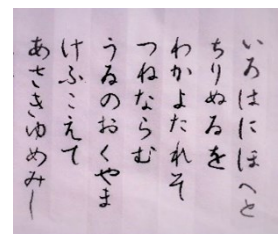 いろはにほへと
ちりぬるを
わかよたれそ
つねならむ
うゐのおくやま
けふこえて
あさきゆめみし